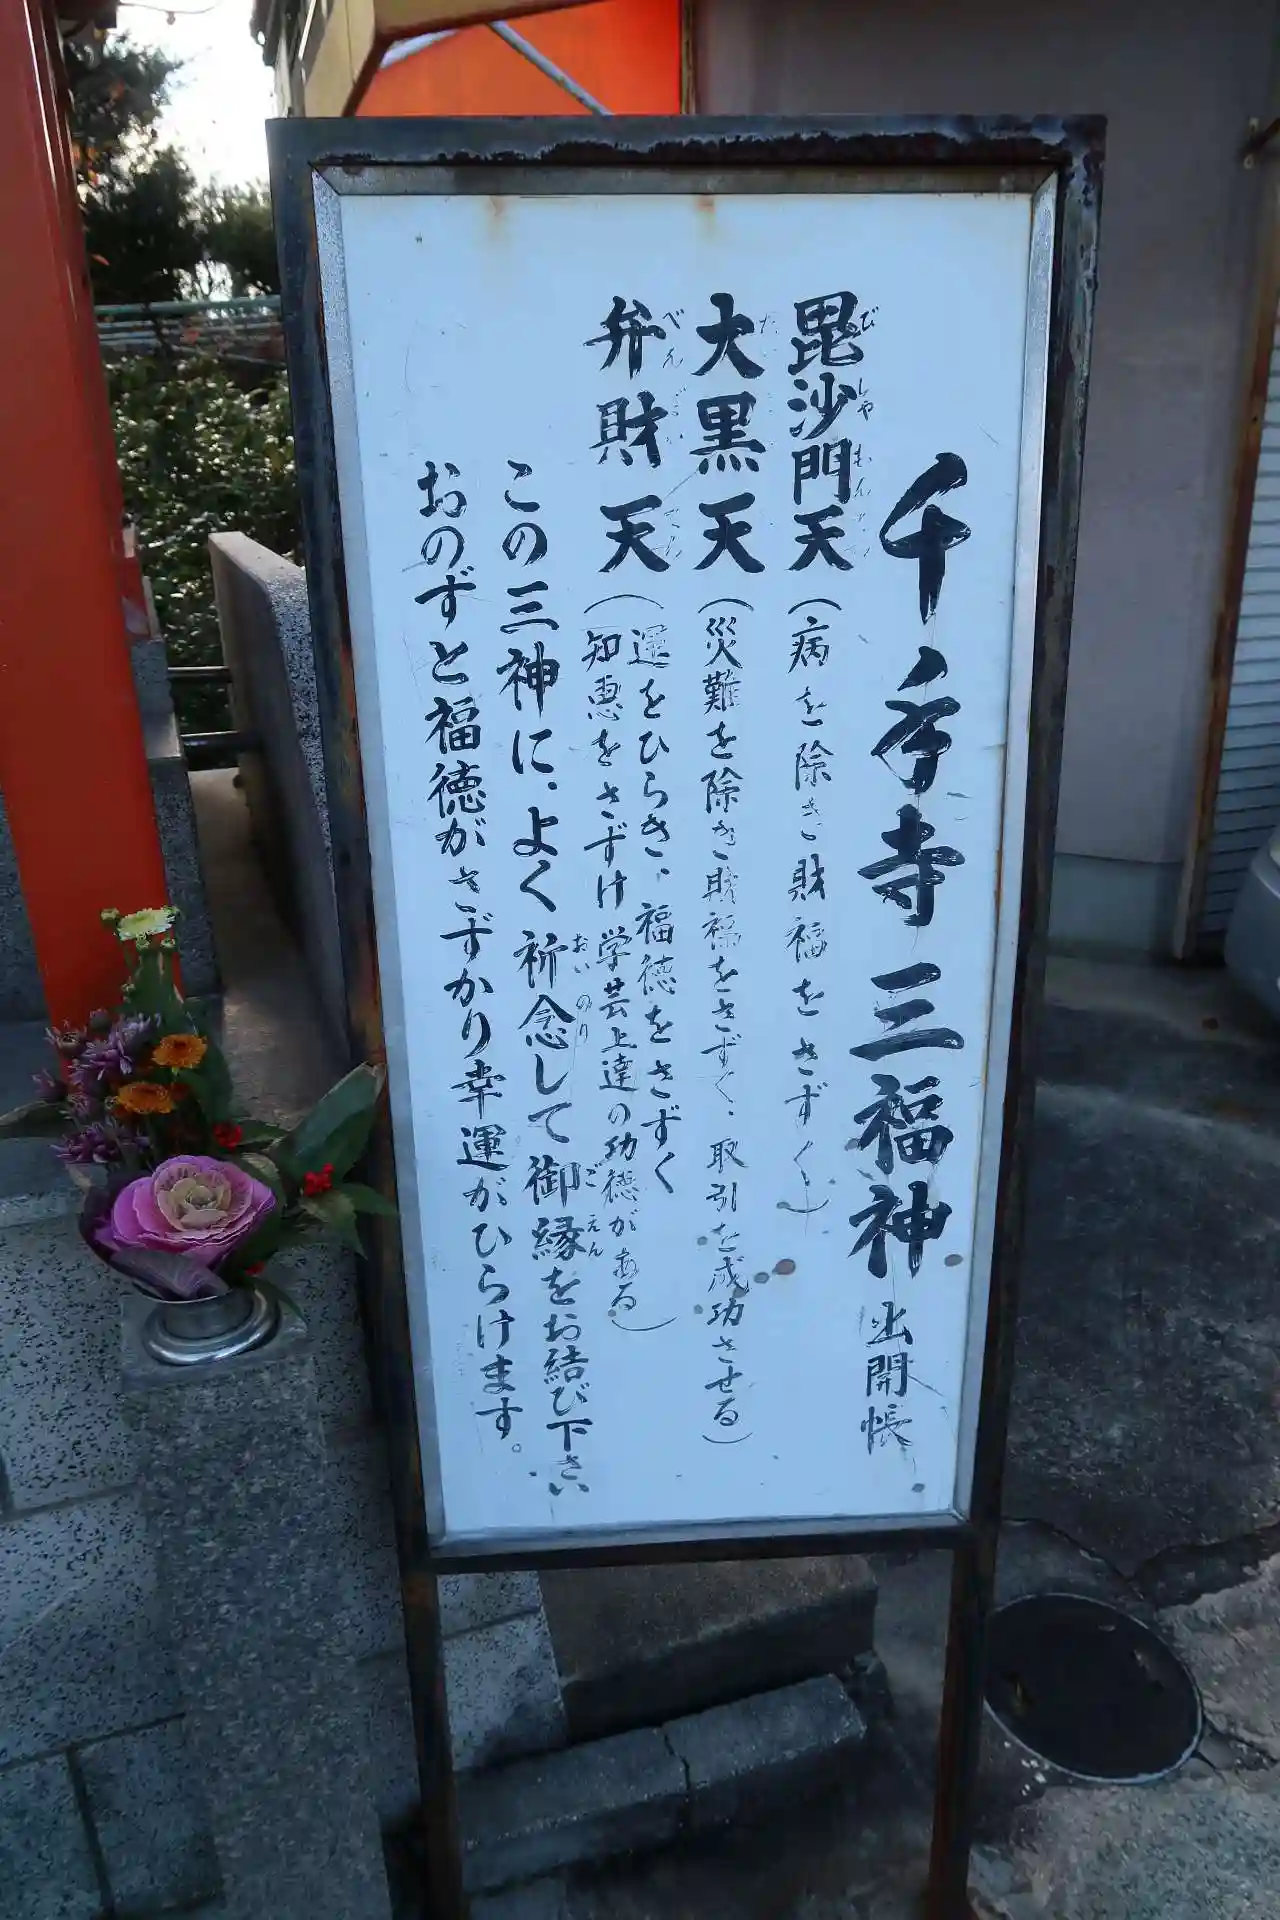 千手寺三福神出開帳
毘沙門天(病を除き財福をさずく)
びしゃもん
大黒天(災難を除き財福をさずく、取引を成功させる)
弁財天(運をひらき、福徳をさずく
べんざいてん
知恵をさずけ学芸上達の功徳がある)
この三神に、よく祈念して御縁をお結び下さい
おいのり
ごえん
おのずと福徳がさずかり幸運がひらけます。